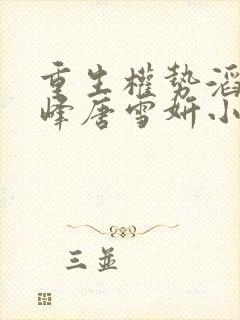 重生權勢滔
峰唐雪妍小
三並